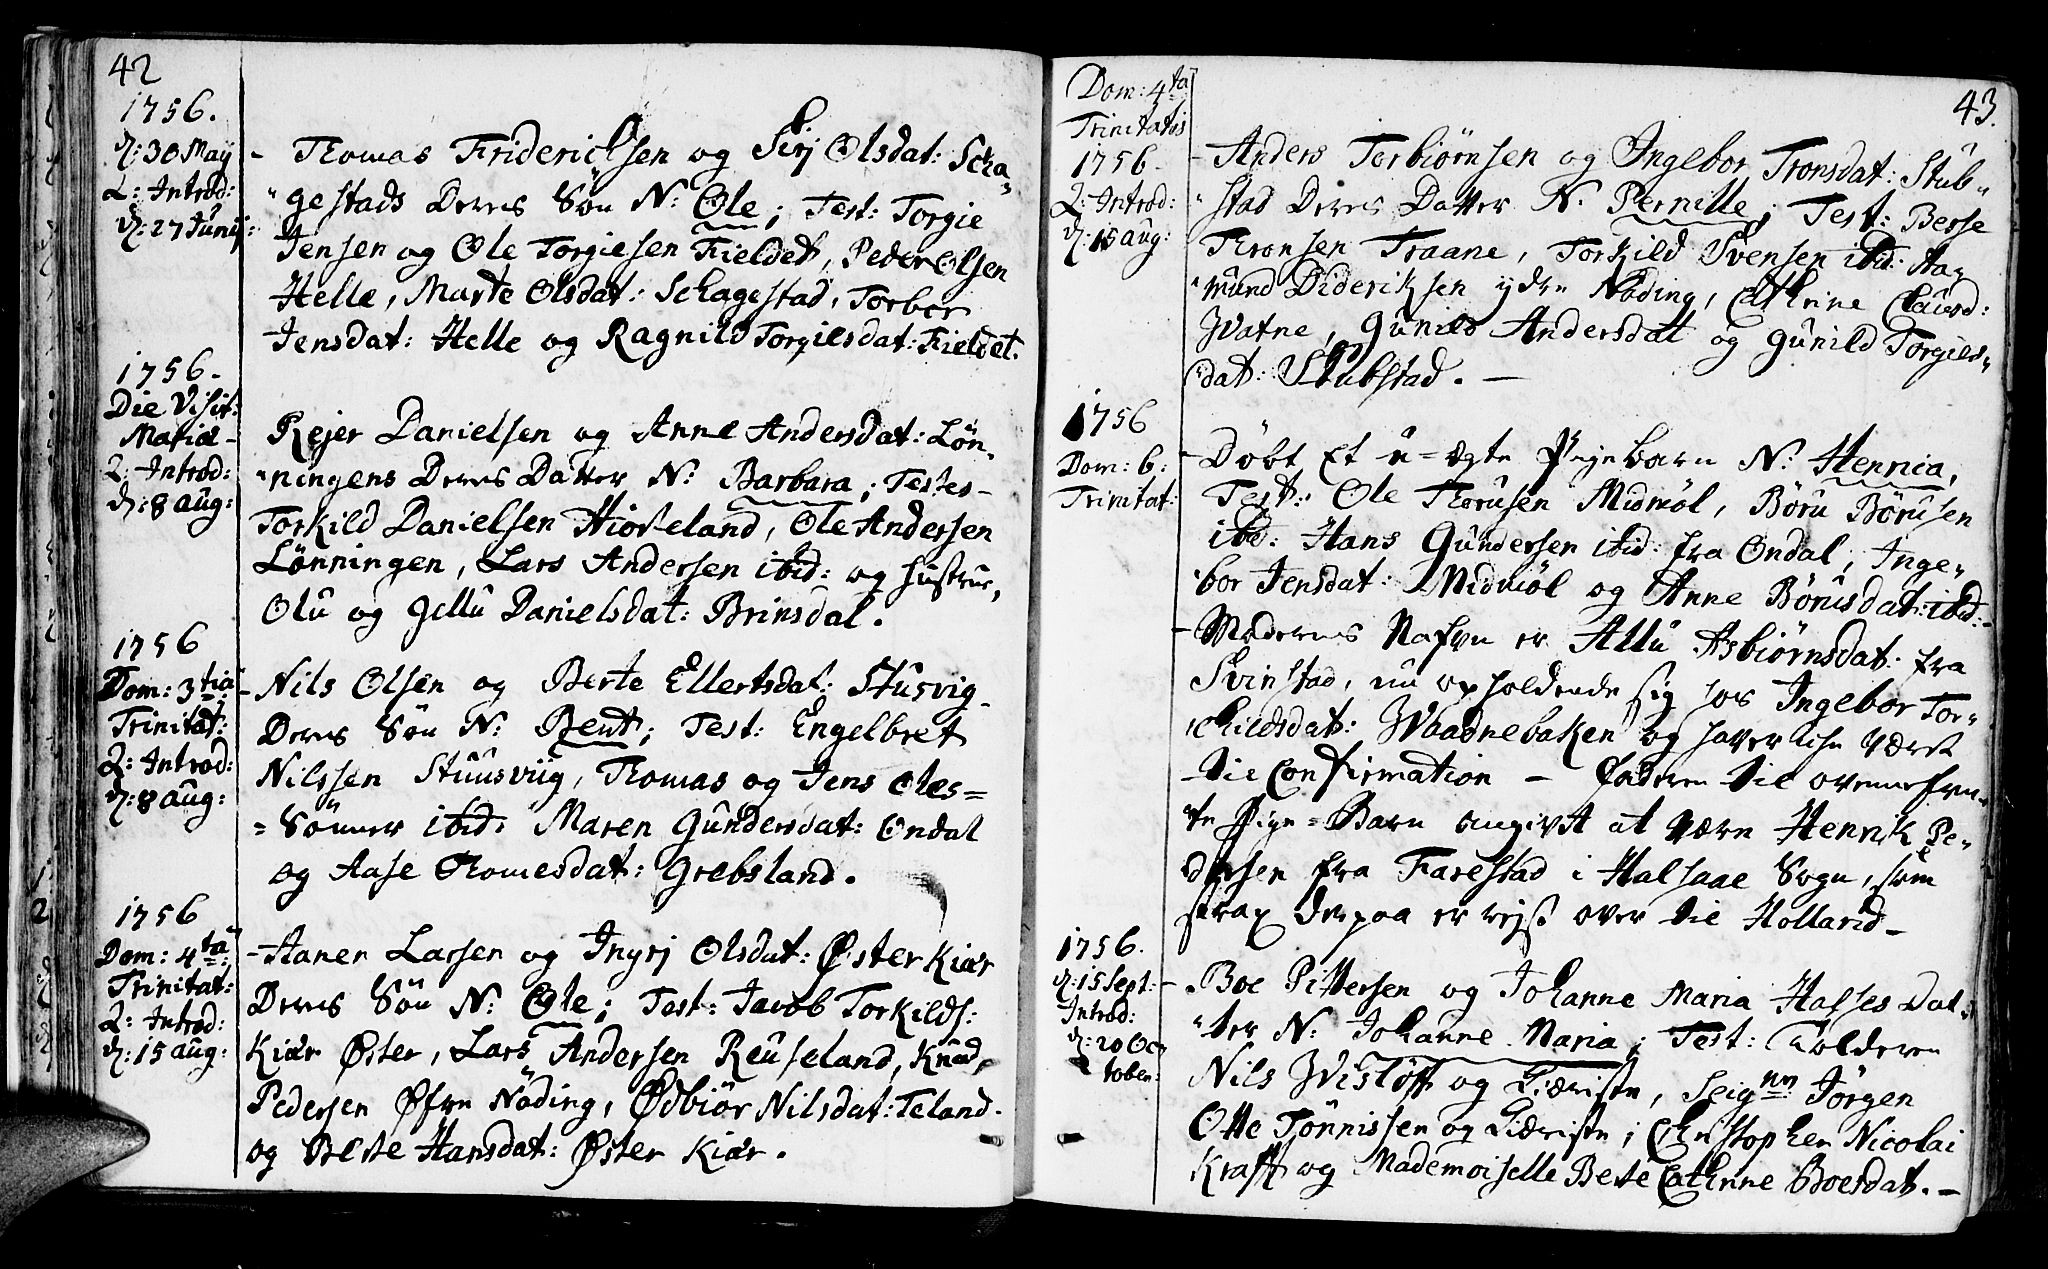 42
1756.
d: 30 May
2: Introd:
d: 27 Junij:
- Thomas Friderichsen og Sirj Olsdat: Scha„
„gestads Deres Sön N: Ole; Test: Torgie
Jensen og Ole Torgiesen Fieldet, Peder Olsen
Helle, Marte Olsdat: Schagestad, Torbor
Jensdat: Helle og Ragnild Torgilsdat: Fieldet.
1756.
Die Visit:
Mariæ -
2: Introd:
d: 8 aug:
Rejer Danielsen og Anne Andersdat: Lön„
„ningens Deres Datter N: Barbara; Testes-
Torkild Danielsen Hioreland, Ole Andersen
Lönningen, Lars Andersen ibid: og Hustrue,
Olu og Jellu Danielsdat: Brinsdal.
1756
Dom: 3tia
Trinitat:
2: Introd:
d: 8 aug:
- Nils Olsen og Berte Ellertsdat: Stusvig
Deres Sön N: Bent; Test: Engelbret
Nilssen Stuusviig, Thomas og Jens Oles=
=Sönner ibid: Maren Gundersdat: Ondal
og Aase Thomesdat: Grebsland.
1756
Dom: 4ta
Trinitat:
2: Introd:
d: 15 aug:
- Haner Larsen og Ingrj Olsdat: Øster Kiær
Deres Sön N: Ole; Test: Jacob Torkilds:
Kiær Øster, Lars Andersen Reuseland, Knud
Pedersen Øfre Nöding, Ødbiör Nilsdat: Teland.
og Berte Hansdat: Øster Kiær.
43.
Dom: 4ta
Trinitatis
1756.
2: Introd:
d: 15 aug:
- Anders Torbiörnsen og Ingebor Tronsdat: Stub„
„stad Deres Datter N. Pernille; Test: Berse
Tronsen Traane, Torkild Svensen ibid: Aa„
„mund Dideriksen ydre Nöding, Cathrine Claused:
Watne, Gunild Andersdat og Gunild Torgils„
„dat: Stubstad. -
1756
Dom: 6:
Trinitat:
- Döbt Et u=ægte Pigebarn N: Hennia,
Test: Ole Thorusen Midmöl, Böru Börusen
ibid: Hans Gundersen ibid: fra Ondal, Inge„
„bor Jensdat: Midmöl og Anne Börusdat: ibid:-
- Moderens Nafn er Allu Asbiörnsdat: fra
Svinstad, nu opholdende sig hos Ingebor Tor„
„chieldsdat: Waadnebaken og haver ike været
til Confirmation - Faderen til ovennefn„
„te Pige=Barn angivet at være Henrik Pe„
dersen fra Farestad i Halsaae Sogn, som
strax derpaa er rejst over til Holland -
1756.
d: 15 Sept:
Introd:
d: 20 Oc„
tober:
- Boe Pittersen og Johanne Maria Halses Dat„
„ter N: Johanne Maria; Test: Tolderen
Nils Wislöff og Kiæriste, Seignr: Jörgen
Otte Tönnissen og Kiæriste; Christopher Nicolai
Krafft og Mademoiselle Berte Cathrine Boesdat. -